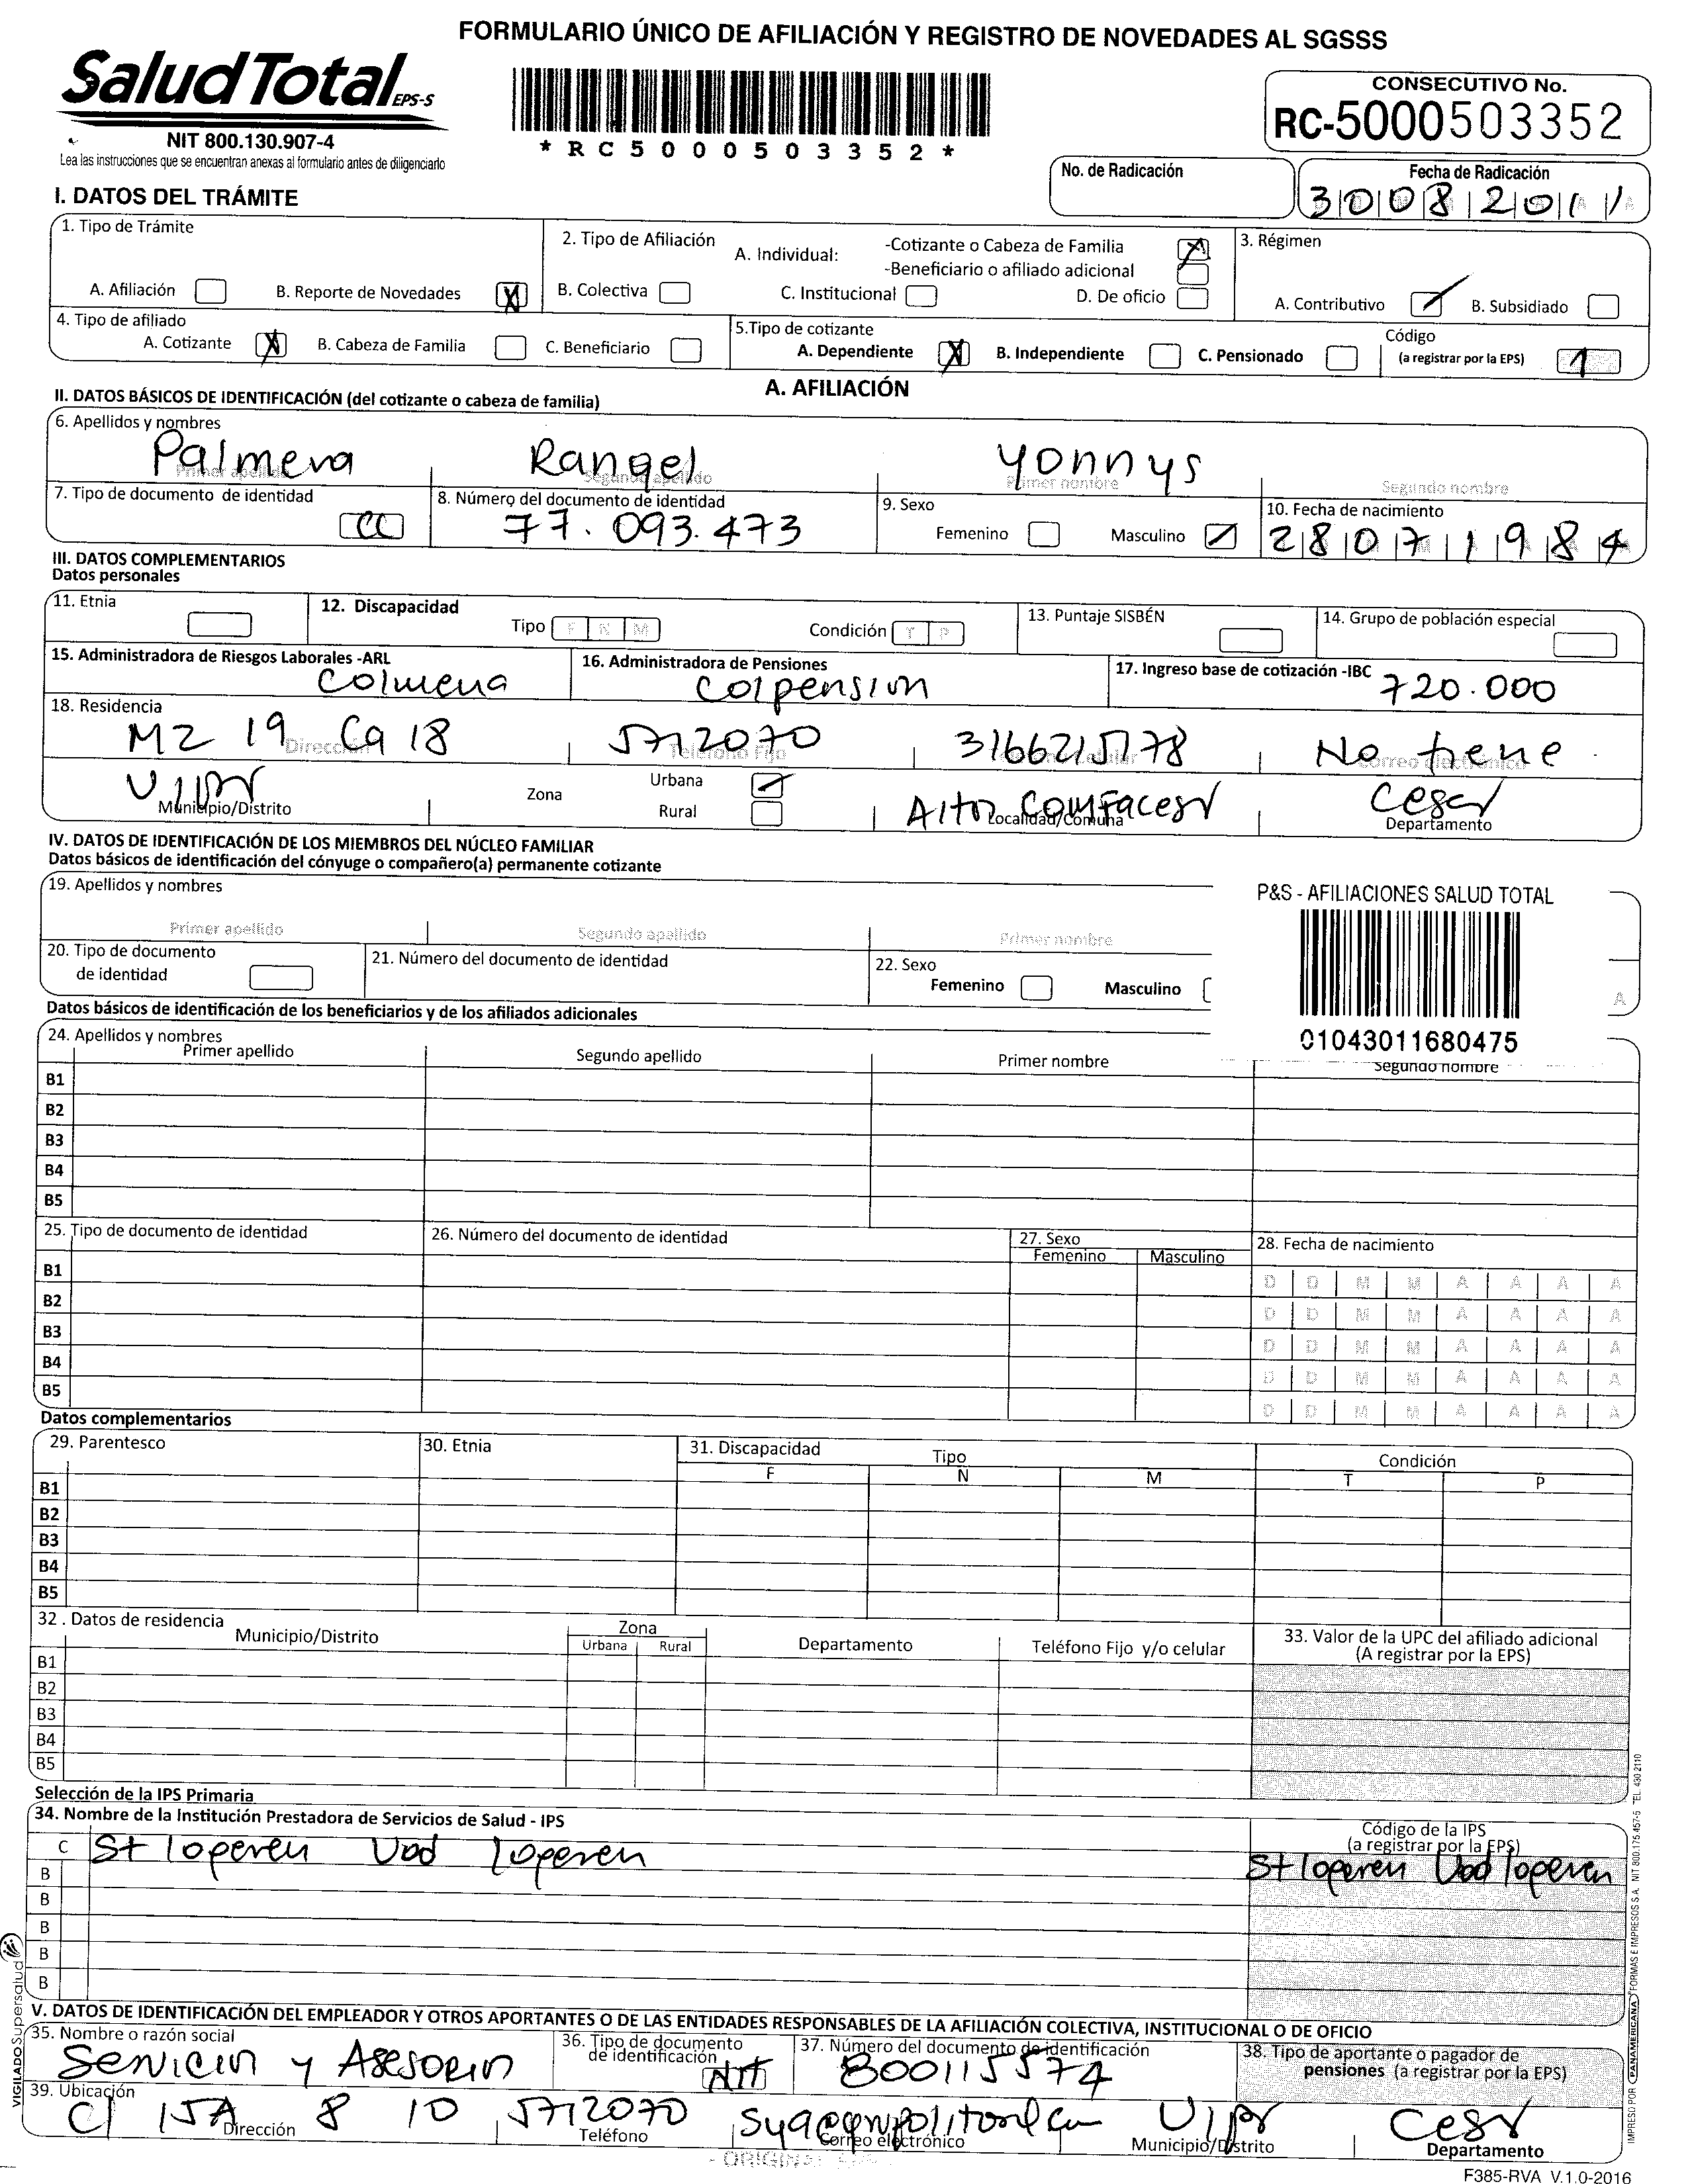 FORMULARIO ÚNICO DE AFILIACIÓN Y REGISTRO DE NOVEDADES AL SGSSS
SaludTotal EPS-S
NIT 800.130.907-4
Lea las instrucciones que se encuentran anexas al formulario antes de diligenciarlo
*RC5000503352*
CONSECUTIVO No.
RC-5000503352
No. de Radicación
Fecha de Radicación
3 0 0 8 2 0 1 1
I. DATOS DEL TRÁMITE
1. Tipo de Trámite
A. Afiliación B. Reporte de Novedades X
2. Tipo de Afiliación A. Individual: -Cotizante o Cabeza de Familia X
-Beneficiario o afiliado adicional
B. Colectiva C. Institucional D. De oficio
3. Régimen
A. Contributivo B. Subsidiado
4. Tipo de afiliado
A. Cotizante X B. Cabeza de Familia C. Beneficiario
5.Tipo de cotizante
A. Dependiente X B. Independiente C. Pensionado
Código
(a registrar por la EPS) 1
A. AFILIACIÓN
II. DATOS BÁSICOS DE IDENTIFICACIÓN (del cotizante o cabeza de familia)
6. Apellidos y nombres
Palmera Rangel Yonnys
Primer apellido Segundo apellido Primer nombre Segundo nombre
7. Tipo de documento de identidad CC
8. Número del documento de identidad
77.093.473
9. Sexo
Femenino Masculino
10. Fecha de nacimiento
2 8 0 7 1 9 8 4
III. DATOS COMPLEMENTARIOS
Datos personales
11. Etnia
12. Discapacidad Tipo F N M Condición T P
13. Puntaje SISBÉN
14. Grupo de población especial
15. Administradora de Riesgos Laborales -ARL
Colmena
16. Administradora de Pensiones
Colpension
17. Ingreso base de cotización -IBC 720.000
18. Residencia
MZ 19 Ca 18 5712070 3166215178 No tiene
Dirección Teléfono Fijo Teléfono Celular Correo electrónico
Municipio/Distrito
Zona Urbana
Rural
Altos Comfacesar Cesar
Localidad/Comuna Departamento
IV. DATOS DE IDENTIFICACIÓN DE LOS MIEMBROS DEL NÚCLEO FAMILIAR
Datos básicos de identificación del cónyuge o compañero(a) permanente cotizante
19. Apellidos y nombres
Primer apellido Segundo apellido Primer nombre
P&S - AFILIACIONES SALUD TOTAL
01043011680475
20. Tipo de documento
de identidad
21. Número del documento de identidad
22. Sexo
Femenino Masculino
A
Datos básicos de identificación de los beneficiarios y de los afiliados adicionales
24. Apellidos y nombres
Primer apellido Segundo apellido Primer nombre Segundo nombre
B1
B2
B3
B4
B5
25. Tipo de documento de identidad 26. Número del documento de identidad 27. Sexo 28. Fecha de nacimiento
Femenino Masculino
B1 D D M M A A A A
B2 D D M M A A A A
B3 D D M M A A A A
B4 D D M M A A A A
B5 D D M M A A A A
Datos complementarios
29. Parentesco 30. Etnia 31. Discapacidad Tipo Condición
F N M T P
B1
B2
B3
B4
B5
32 . Datos de residencia
Municipio/Distrito Zona Departamento Teléfono Fijo y/o celular
Urbana Rural
33. Valor de la UPC del afiliado adicional
(A registrar por la EPS)
B1
B2
B3
B4
B5
Selección de la IPS Primaria
34. Nombre de la Institución Prestadora de Servicios de Salud - IPS
Código de la IPS
(a registrar por la EPS)
C St loperen Uad loperen St loperen Uad loperen
B
B
B
B
B
V. DATOS DE IDENTIFICACIÓN DEL EMPLEADOR Y OTROS APORTANTES O DE LAS ENTIDADES RESPONSABLES DE LA AFILIACIÓN COLECTIVA, INSTITUCIONAL O DE OFICIO
35. Nombre o razón social
Servicios y Asesorias
36. Tipo de documento
de identificación
Nit
37. Número del documento de identificación
800115574
38. Tipo de aportante o pagador de
pensiones (a registrar por la EPS)
39. Ubicación
Cl 15A 8 10 5712070 Cesar
Dirección Teléfono Correo electrónico Municipio/Distrito Departamento
- ORIGINAL
F385-RVA V.1.0-2016
VIGILADO Supersalud
IMPRESO POR PANAMERICANA FORMAS E IMPRESOS S.A. NIT 800.175.457-5 TEL. 430 2110